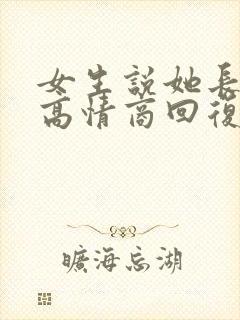 女生說她長
高情商回復
曠海忘湖